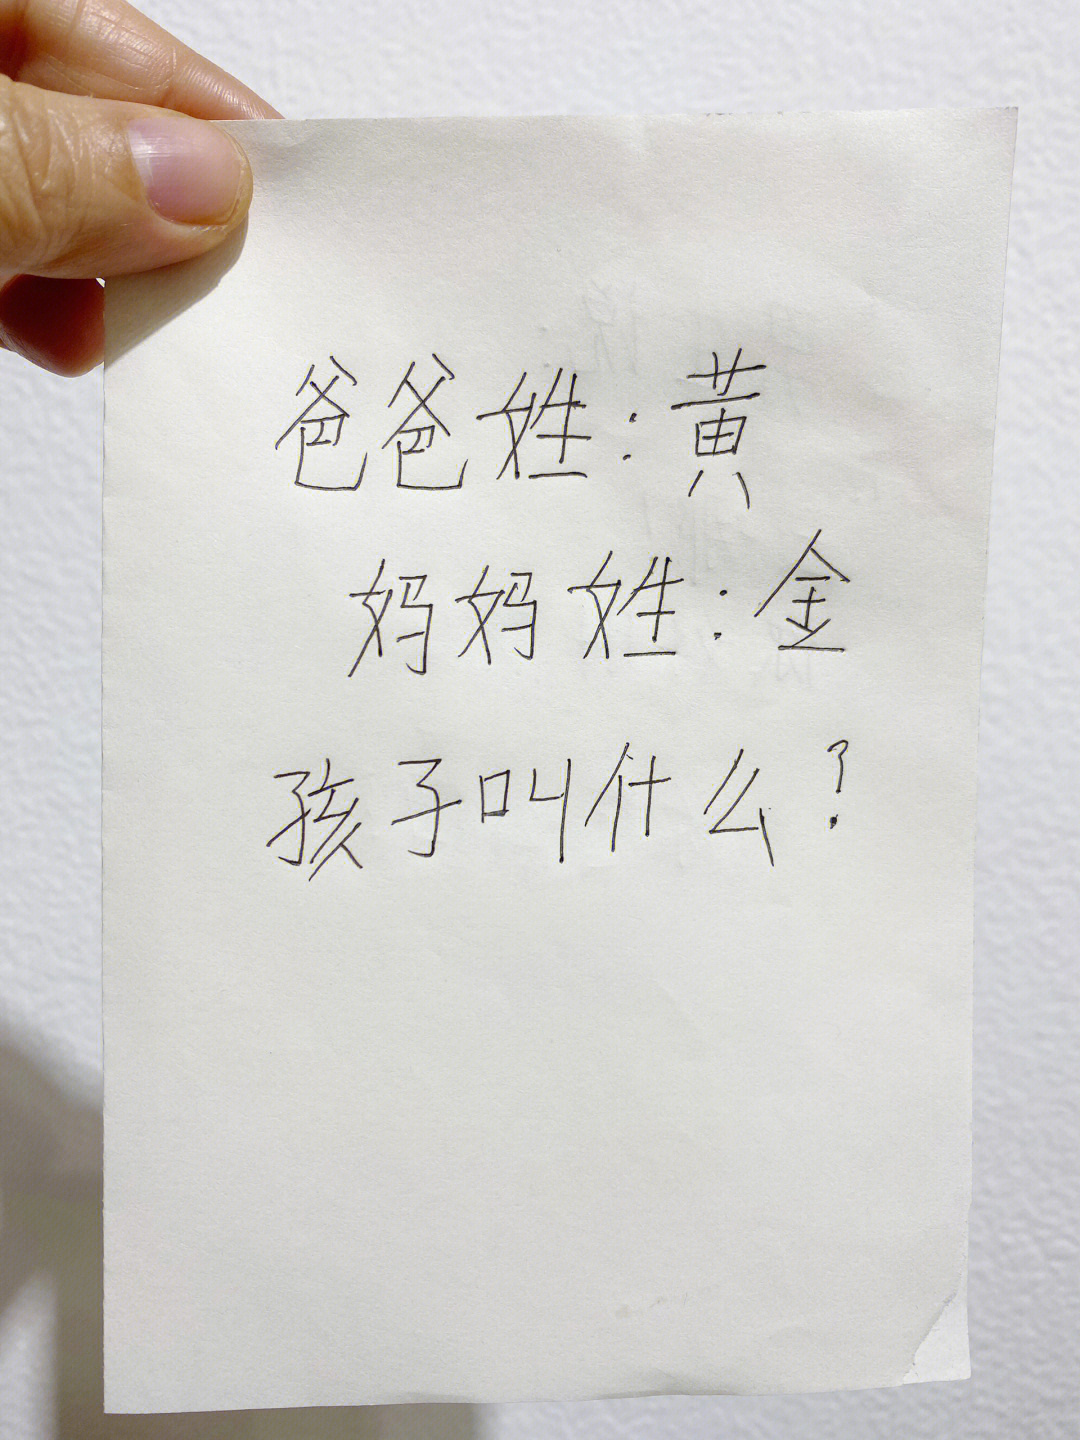 爸爸姓:黄
妈妈姓:金
孩子叫什么?